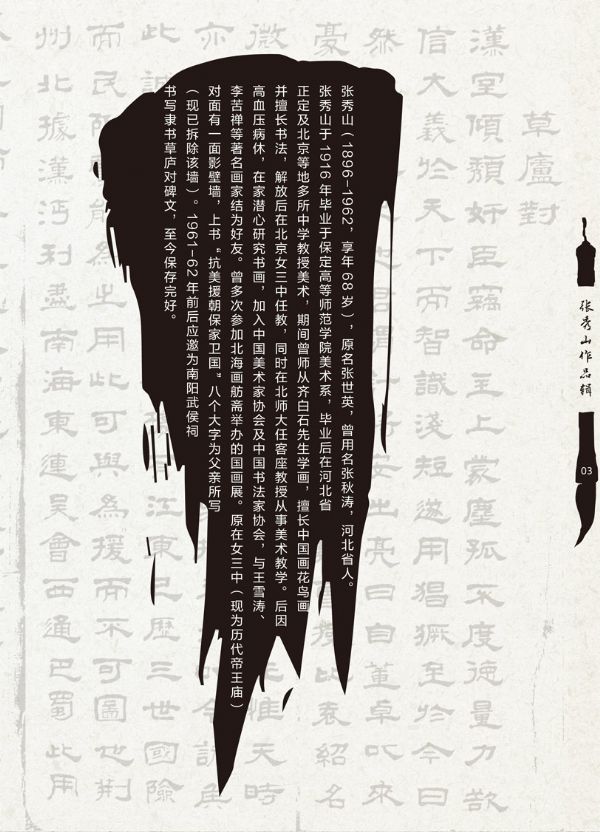 张秀山作品辑
03
草廬對
漢室傾頹奸臣竊命主上蒙塵孤不度德量力欲
信大義於天下而智識淺短遂用猖獗至於今日
然
亮曰自董卓以來
豪
袁紹名
微
惟天時
亦
此誠
江東已歷三世國險
而民
能為之用此可與為援而不可圖也荊
州北據漢沔利盡南海東連吳會西通巴蜀此用
张秀山（1896-1962，享年68岁），原名张世英，曾用名张秋涛，河北省人。
张秀山于1916年毕业于保定高等师范学院美术系，毕业后在河北省
正定及北京等地多所中学教授美术，期间曾师从齐白石先生学画，擅长中国画花鸟画
并擅长书法，解放后在北京女三中任教，同时在北师大任客座教授从事美术教学。后因
高血压病休，在家潜心研究书画，加入中国美术家协会及中国书法家协会，与王雪涛、
李苦禅等著名画家结为好友。曾多次参加北海画舫斋举办的国画展。原在女三中（现为历代帝王庙）
对面有一面影壁墙，上书“抗美援朝保家卫国”八个大字为父亲所写
（现已拆除该墙）。1961-62年前后应邀为南阳武侯祠
书写隶书草庐对碑文，至今保存完好。